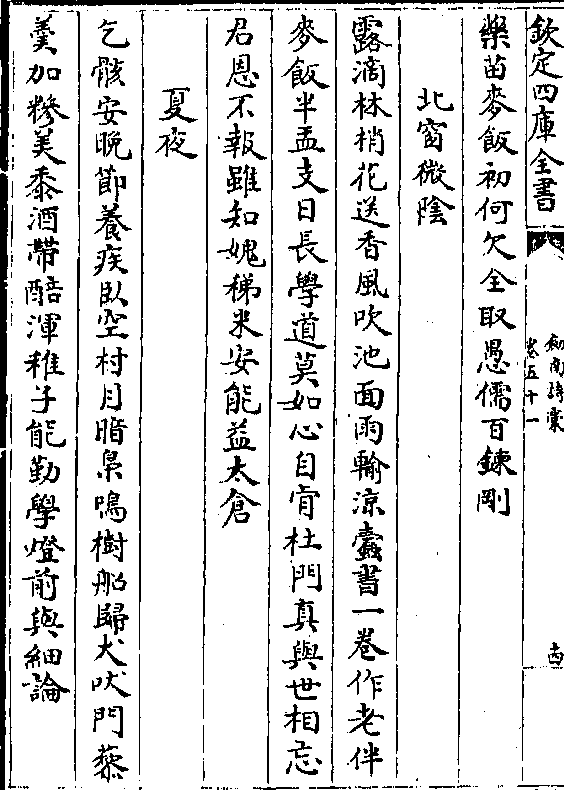 欽定四庫全書
劍南詩藁
卷五十一
十四
藥苗麥飯初何欠全取愚儒百鍊剛
北窗微陰
露滴林梢花送香風吹池面雨輸涼蠹書一卷作老伴
麥飯半盂支日長學道莫如心自肯杜門真與世相忘
君恩不報雖知媿稊米安能益太倉
夏夜
乞骸安晚節養疾臥空村月暗梟鳴樹船歸犬吠門藜
羮加糝美黍酒帶醅渾稚子能勤學燈前與細論